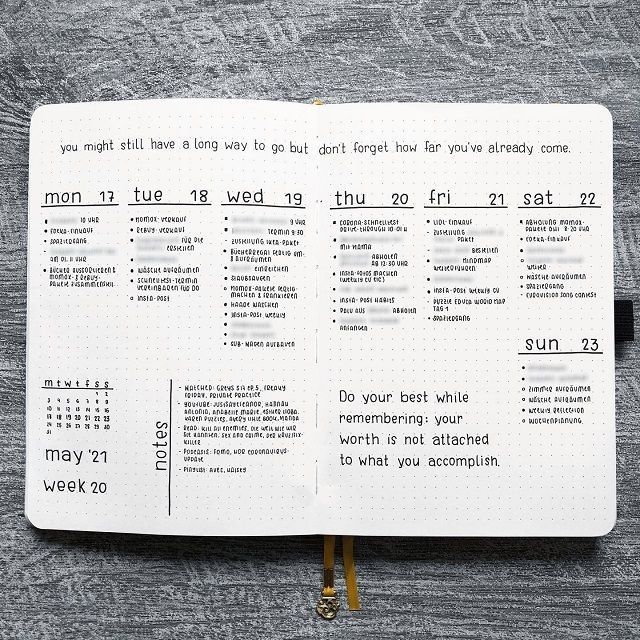 you might still have a long way to go but don't forget how far you've already come.
mon 17
10 UHR
EDEKA-EINKAUF
SPAZIERGANG
AM 01. 11 UHR
BÜCHER AUSSORTIEREN &
MOMOX- & REBUY-
PAKETE ZUSAMMENSTELL.
tue 18
MOMOX-VERKAUF
REBUY-VERKAUF
FÜR DIE
ERSTELLEN
WÄSCHE AUFRÄUMEN
SCHNELLTEST-TERMIN
VEREINBAREN FÜR DO
INSTA-POST
wed 19
9 UHR
TERMIN 9:30
ZUSTELLUNG IKEA-PAKET
BÜCHERREGAL FERTIG UM-
& AUFRÄUMEN
EINREICHEN
STAUBSAUGEN
MOMOX-PAKETE FERTIG-
MACHEN & FRANKIEREN
HAARE WASCHEN
INSTA-POST WEEKLY
SUB-WAGEN AUFBAUEN
thu 20
CORONA-SCHNELLTEST
DRIVE-THROUGH 10:01 H
MIT MAMA
ABHOLEN
AB 12:30 UHR
INSTA-FOTOS MACHEN
INSTA-POST HABITS
ABHOLEN
ANFANGEN
fri 21
LIDL-EINKAUF
ZUSTELLUNG
PAKET
BESTELLEN
MINDMAP
WEITERFÜHREN
INSTA-POST WEEKLY CU
PUZZLE EDUCA WORLD MAP
TAG 1
SPAZIERGANG
sat 22
ABHOLUNG MOMOX-
PAKETE DHL 8-20 UHR
EDEKA-EINKAUF
WEITER
WÄSCHE AUFRÄUMEN
SPAZIERGANG
EUROVISION SONG CONTEST
sun 23
ZIMMER AUFRÄUMEN
WÄSCHE AUFRÄUMEN
WEEKLY REFLECTION
WOCHENPLANUNG
m t w t f s s
1 2
3 4 5 6 7 8 9
10 11 12 13 14 15 16
17 18 19 20 21 22 23
24 25 26 27 28 29 30
31
may '21
week 20
notes
- WATCHED: GREYS S14 EP.5, FREAKY
FRIDAY, PRIVATE PRACTICE
- YOUTUBE: JUSTSAYELEANOR, HANNAH
ANTONIA, ANNABELLE MARIE,
KAREN PUZZLES, AVERY LITTLE BOOK,
- READ: KILL ALL ENEMIES, DIE WELT WIE WIR
SIE KANNTEN, SEX AND CRIME, DER KRUZIFIX-
KILLER
- PODCASTS: FOMO, NDR CORONAVIRUS-
UPDATE
- PLAYLIST: AVEC, HALSEY
Do your best while
remembering: your
worth is not attached
to what you accomplish.